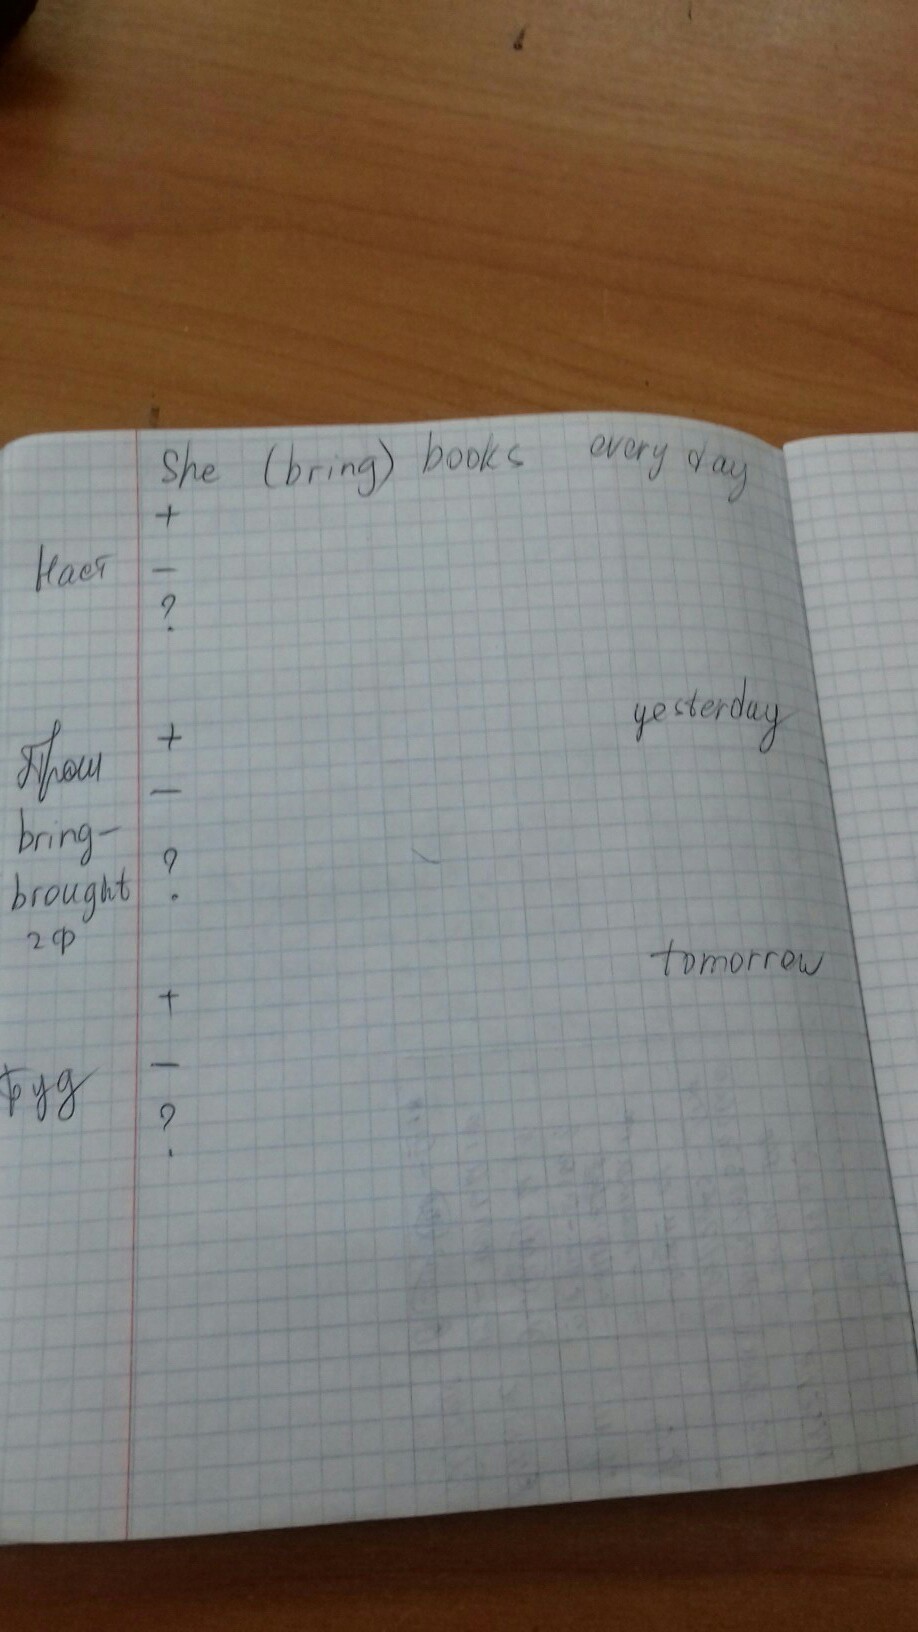 She (bring) books every day
+
Наст –
?
yesterday
Прош +
–
bring–
brought ?
2ф
tomorrow
+
Буд –
?